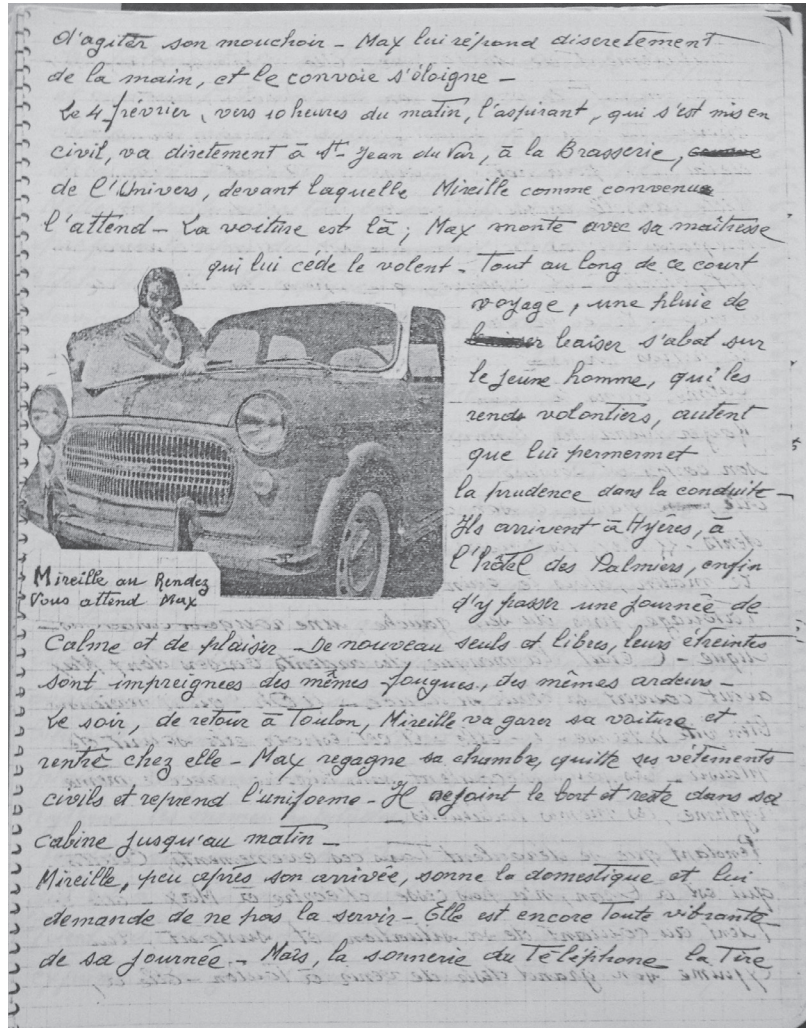 d'agiter son mouchoir - Max lui répond discretement
de la main, et le convoie s'éloigne -
Le 4 février, vers 10 heures du matin, l'aspirant, qui s'est mis en
civil, va diretement à St-Jean du Var, à la Brasserie,
de l'Univers, devant laquelle Mireille comme convenue
l'attend - La voiture est là; Max monte avec sa maîtresse
qui lui cède le volent - Tout au long de ce court
voyage, une pluie de
baiser s'abat sur
le jeune homme, qui les
rends volontiers, autent
que lui permermet
la prudence dans la conduite -
Ils arrivent à Hyeres, à
l'Hôtel des Palmiers, enfin
d'y passer une journée de
Mireille au Rendez
Vous attend Max
Calme et de plaisir - De nouveau seuls et libres, leurs étreintes
sont impreignees des mêmes fougues, des mêmes ardeurs -
Le soir, de retour à Toulon, Mireille va garer sa voiture et
rentre chez elle - Max regagne sa chambre, quitte ses vêtements
civils et reprend l'uniforme - Il rejoint le bort et reste dans sa
cabine jusqu'au matin -
Mireille, peu après son arrivée, sonne la domestique et lui
demande de ne pas la servir - Elle est encore toute vibrante
de sa journée - Mais, la sonnerie du Téléphone la tire